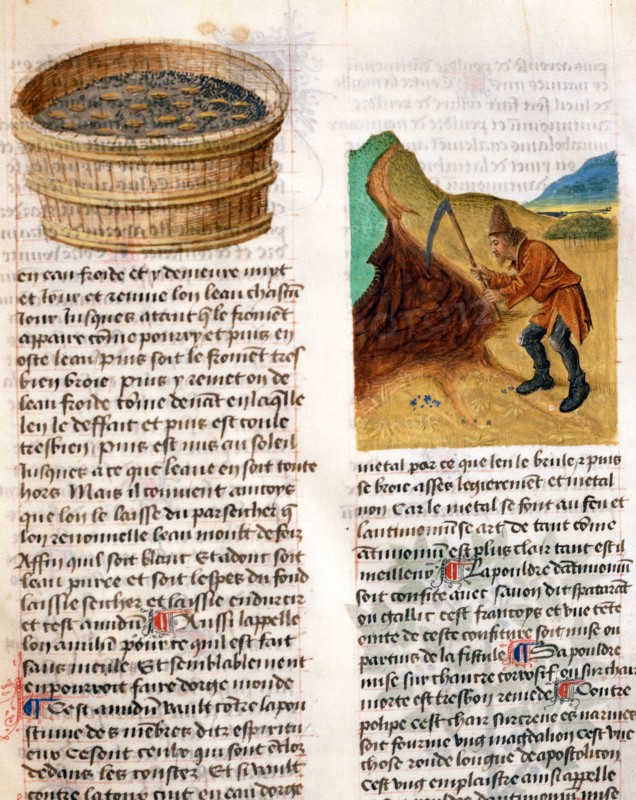 en eau froide et y demeure nuyt
et iour et renuue lon leau chascun
iour iusques atant q̄ le froment
appaire cōme pourry et puis en
oste leau / puis soit le fromēt tres
bien broie / puis y remet on de
leau froide cōme deuāt en laq̄lle
len le deffait et puis est coule
tresbien / puis est mis au soleil
iusques a ce que leaue en soit toute
hors Mais il conuient ancoys
que lon le laisse du par seicher q̄
lon renouuelle leau moult de foiz
Affin quil soit blanc Et adont soit
leau puree et soit lespes du fond
laissie seicher et laissie endurcir
et cest amidū ¶ Aussi lappelle
lon amilū pour ce quil est fait
sans meule Et semblablement
en pourroit faire dorge monde
¶ Cest amidū vault cōtre lapou
stume des mēbres ditz espiritu
eux Ce sont ceulx qui sont enclos
dedans les costez Et si vault
contre la toux cuit en eau dorge
metal por ce que len le brule ⁊ puis
se broie asses legierement et metal
non Car le metal se font au feu et
lantimoniū se art / de tant cōme
ātimoniū est plus clair tant est il
meilleur ¶ La pouldre dantimoniū
soit confite auec sauon dit spatarāt
ou gallic cest francoys et vne tēte
ointe de ceste confiture soit mise ou
partuis de la fistule ¶ Sa pouldre
mise sur chancre corrosif ou sur chair
morte est tresbon remede ¶ Contre
polipe cest chair surcreue es narines
soit fourme vng magdalion cest vne
chose ronde longue de apostolicon
cest vng emplaistre ainsi appelle
pouldre dantimoniū mise